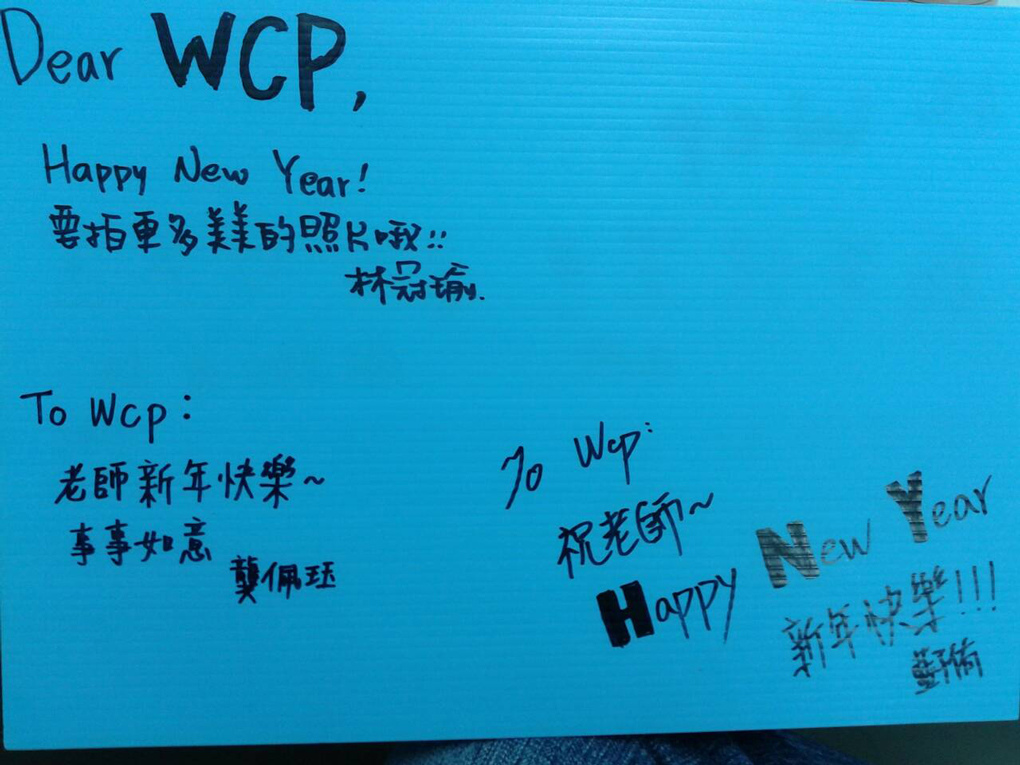 Dear WCP,
Happy New Year!
要拍更多美美的照片哦!!
林冠瑜.
To Wcp:
老師新年快樂~
事事如意
龔佩珏
To Wcp:
祝老師~
Happy New Year
新年快樂!!!